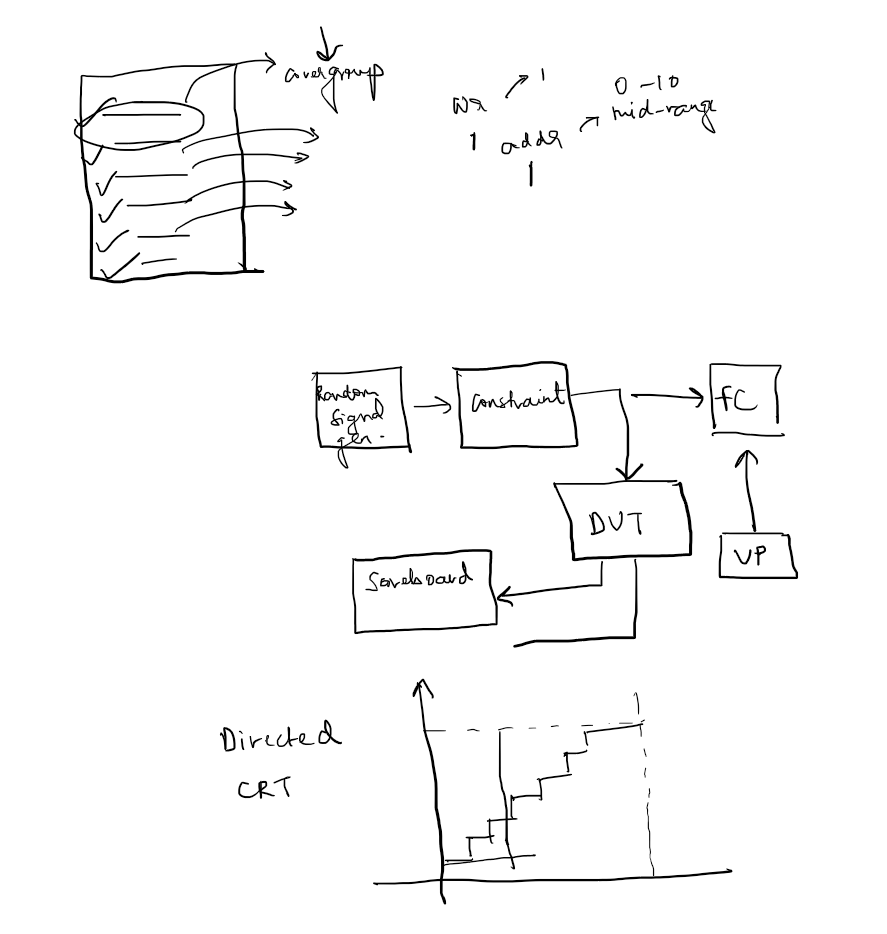 covergroup
wr
1
1
addr
1
0 - 10
mid-range
Random
Signal
gen.
Constraint
FC
DUT
VP
Scoreboard
Directed
CRT